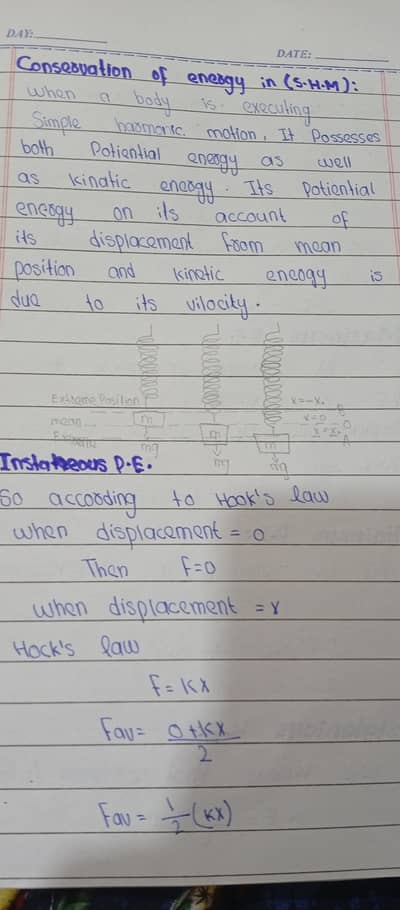 DAY:
DATE:
Consesvation of enesgy in (S.H.M):
when a body is executing
Simple hasmosic motion, It Possesses
both Potiential enesgy as well
as kinatic enesgy. Its Potiential
enesgy on its account of
its displacement from mean
position and kinetic enesgy is
due to its vilocity.
Extreme Position
mean
Extreme
m
m
m
mg
mg
mg
x=-x₀
x=0
x=x₀
B
O
A
Instateous P.E.
So accosding to Hook's law
when displacement = 0
Then F=0
when displacement = x
Hock's law
F = Kx
Fav = 0+Kx
2
Fav = 1/2 (Kx)